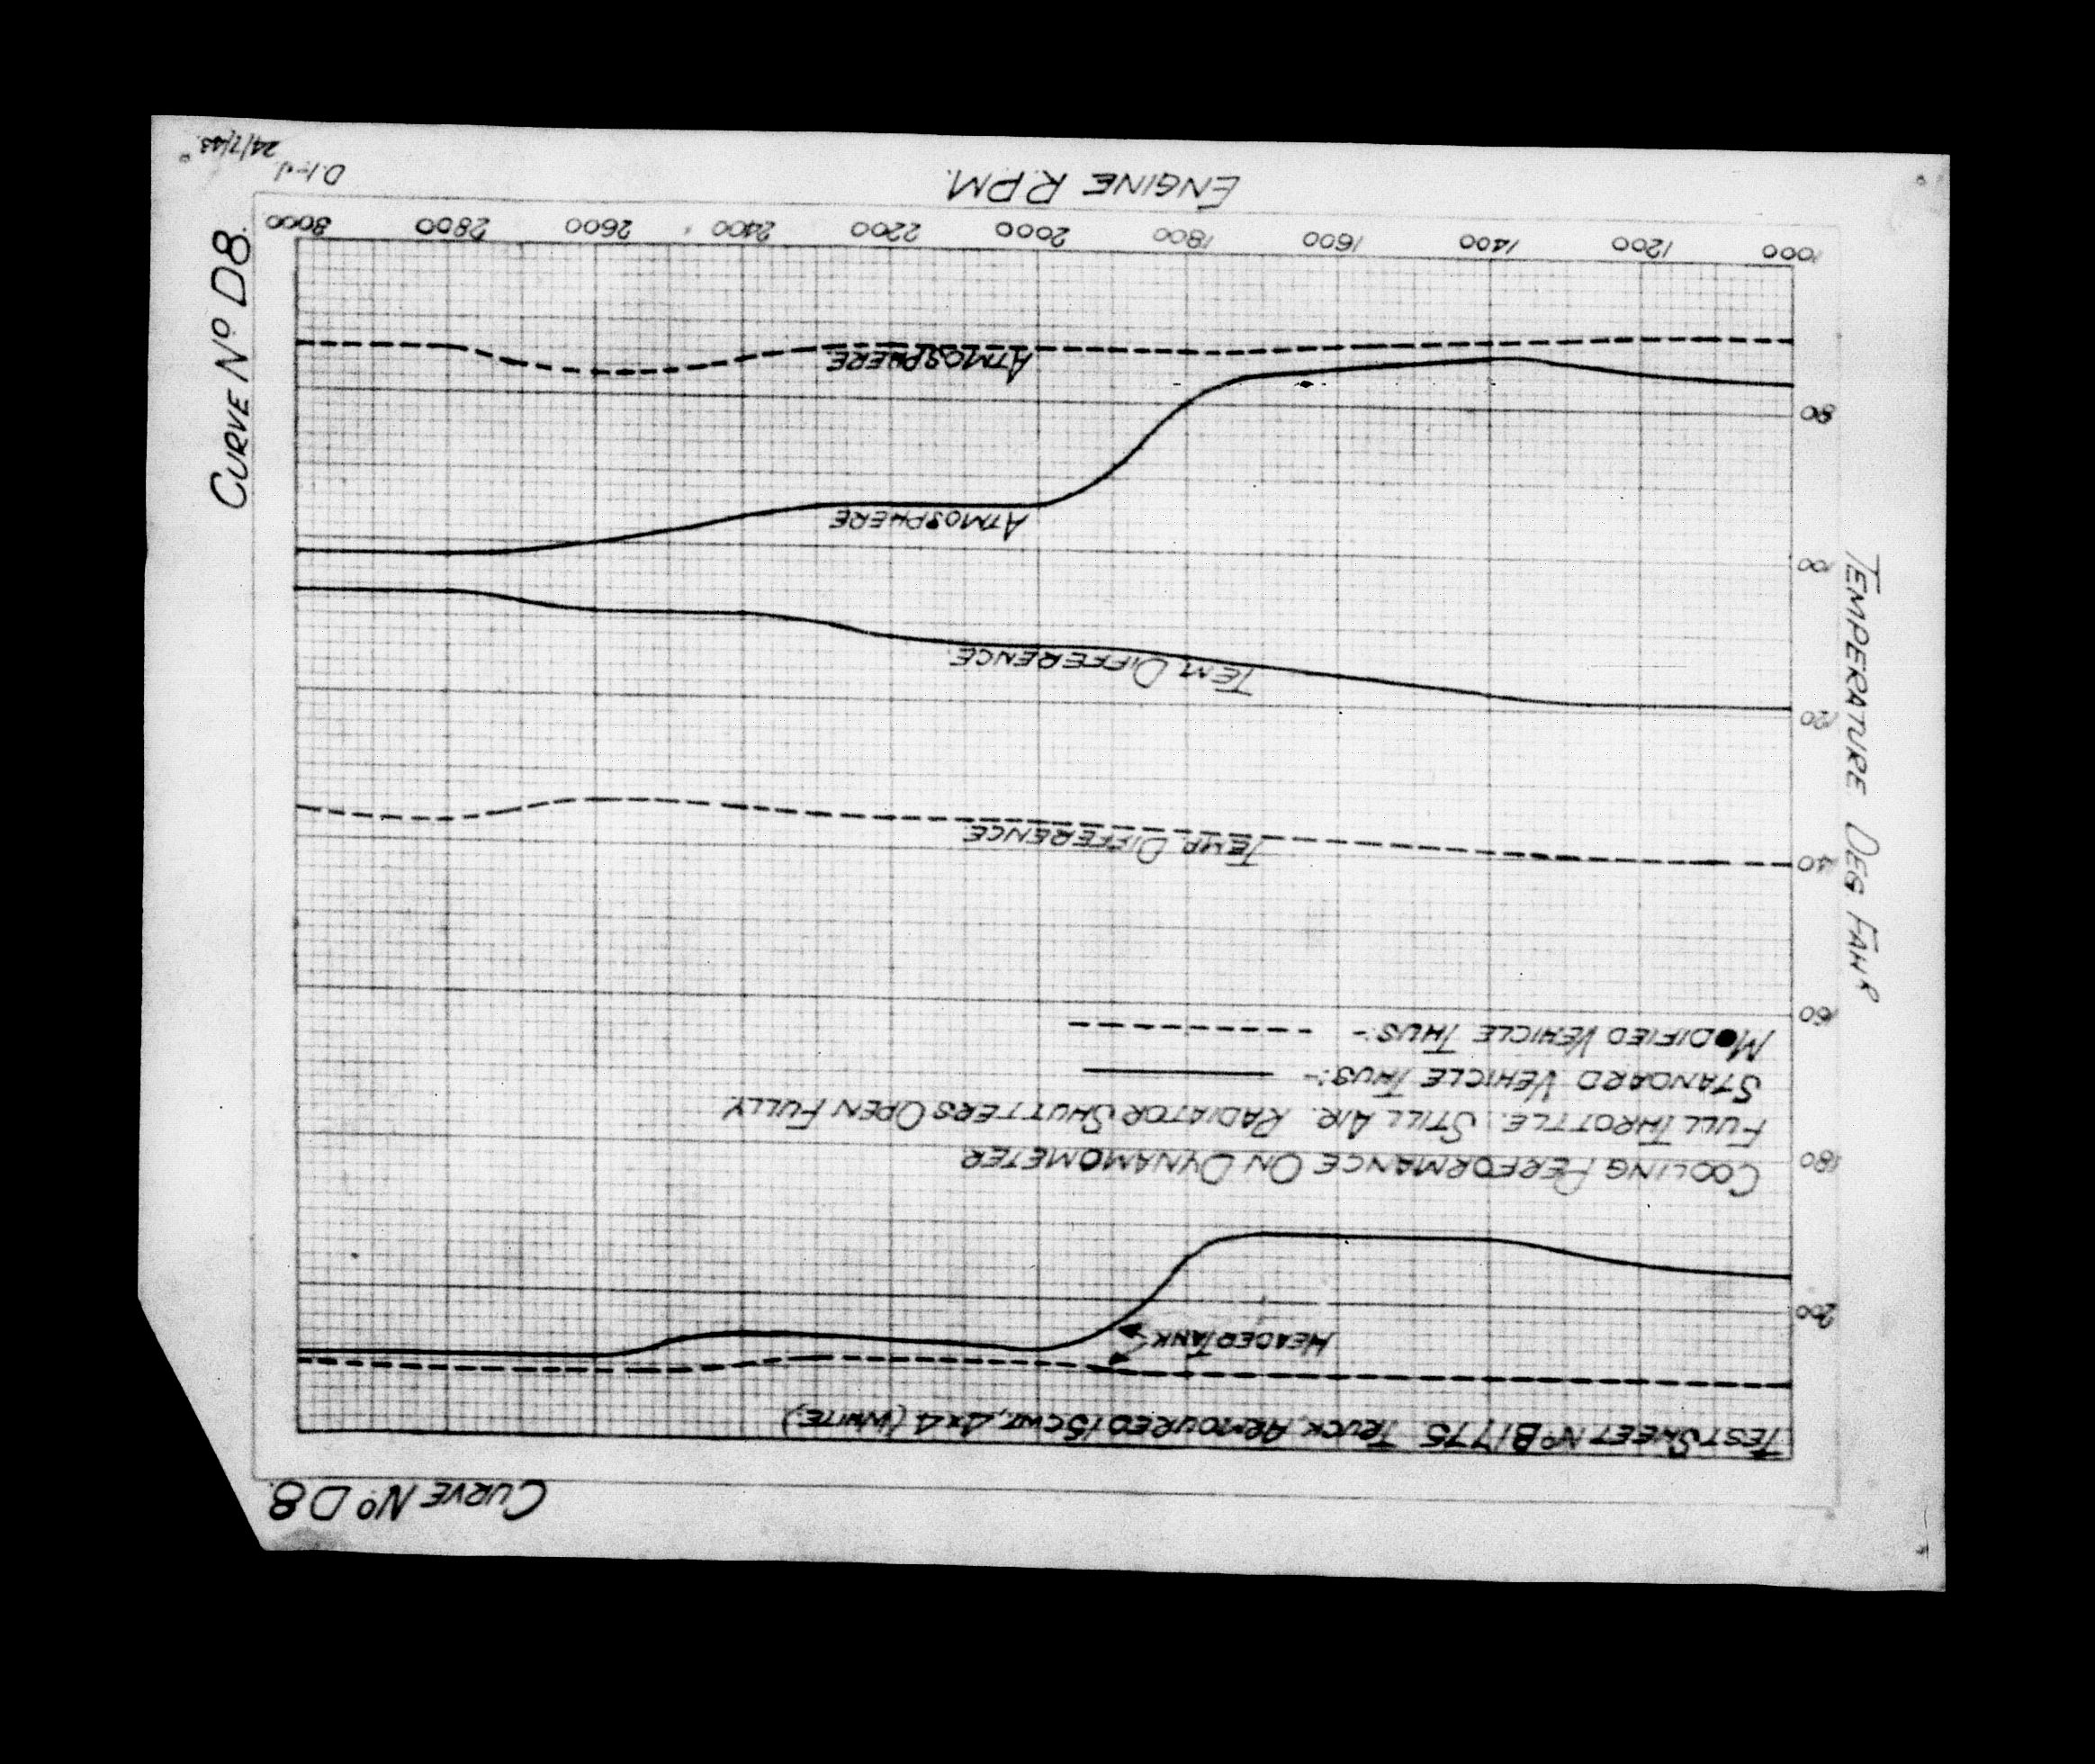 CURVE No D8.
TEST SHEET No B1775 TRUCK, ARMOURED 15 CWT, 4x4 (WHITE)
HEADER TANK
COOLING PERFORMANCE ON DYNAMOMETER
FULL THROTTLE. STILL AIR. RADIATOR SHUTTERS OPEN FULLY
STANDARD VEHICLE THUS:-
MODIFIED VEHICLE THUS:-
TEMP. DIFFERENCE
TEM. DIFFERENCE.
ATMOSPHERE
ATMOSPHERE
TEMPERATURE DEG FAHR
200
180
160
140
120
100
80
1000 1200 1400 1600 1800 2000 2200 2400 2600 2800 3000
ENGINE R.P.M.
CURVE No D8.
24/7/43.